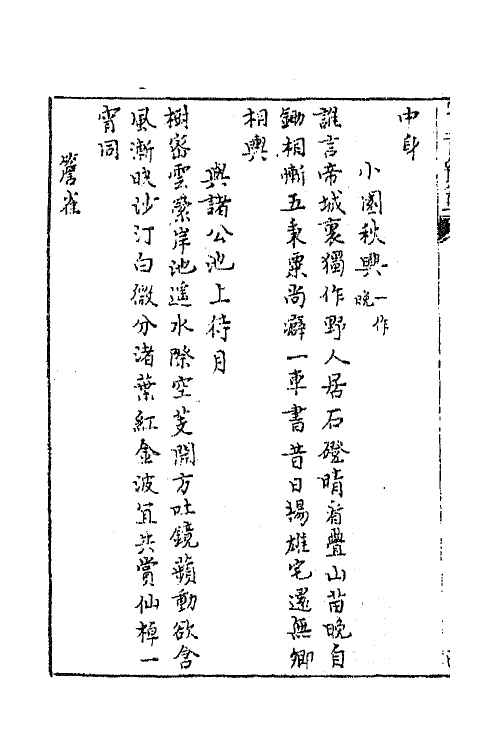 中身
小園秋興一作晚
誰言帝城裏獨作野人居石磴晴看疊山苗晚自
鋤相慚五秉粟尚癖一車書昔日揚雄宅還無卿
相輿
與諸公池上待月
樹密雲縈岸池遥水際空芰開方吐鏡蘋動欲含
風漸映沙汀白微分渚葉紅金波宜共賞仙棹一
宵同
鶯雀